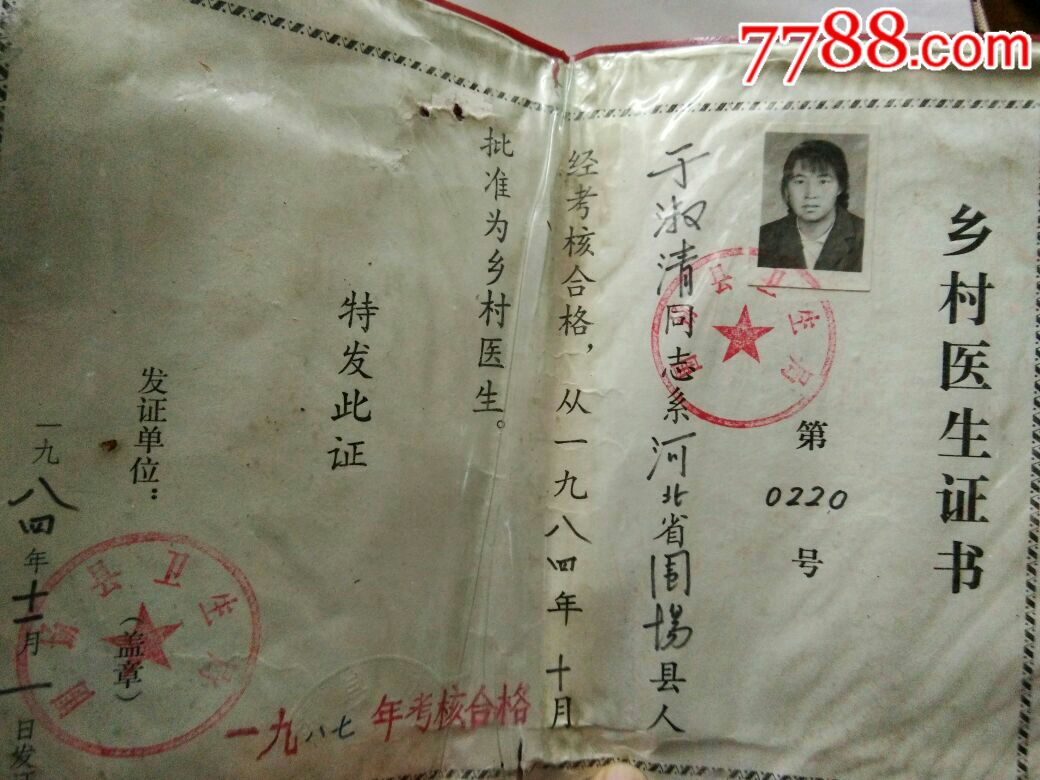 7788.com
乡村医生证书
第0220号
于淑清同志系河北省围场县人
经考核合格，从一九八四年十月
批准为乡村医生。
特发此证
发证单位：
（盖章）
一九八四年十一月一日发证
围场县卫生局
围场县卫生局
一九八七年考核合格